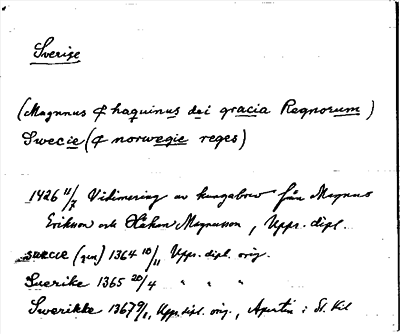 Sverige
(Magnnus & haquinus dei gracia Regnorum)
Swecie (& norwegie reges)
1426 11/7 Vidimering av kungabrev från Magnus
Eriksson och Håkan Magnusson, Upps. dipl.
suecie (gen) 1364 10/11 Upps. dipl. orig.
Suerike 1365 20/4 " " "
Swerikke 1367 9/1, Upps. dipl. orig., Apertin i St. Kil